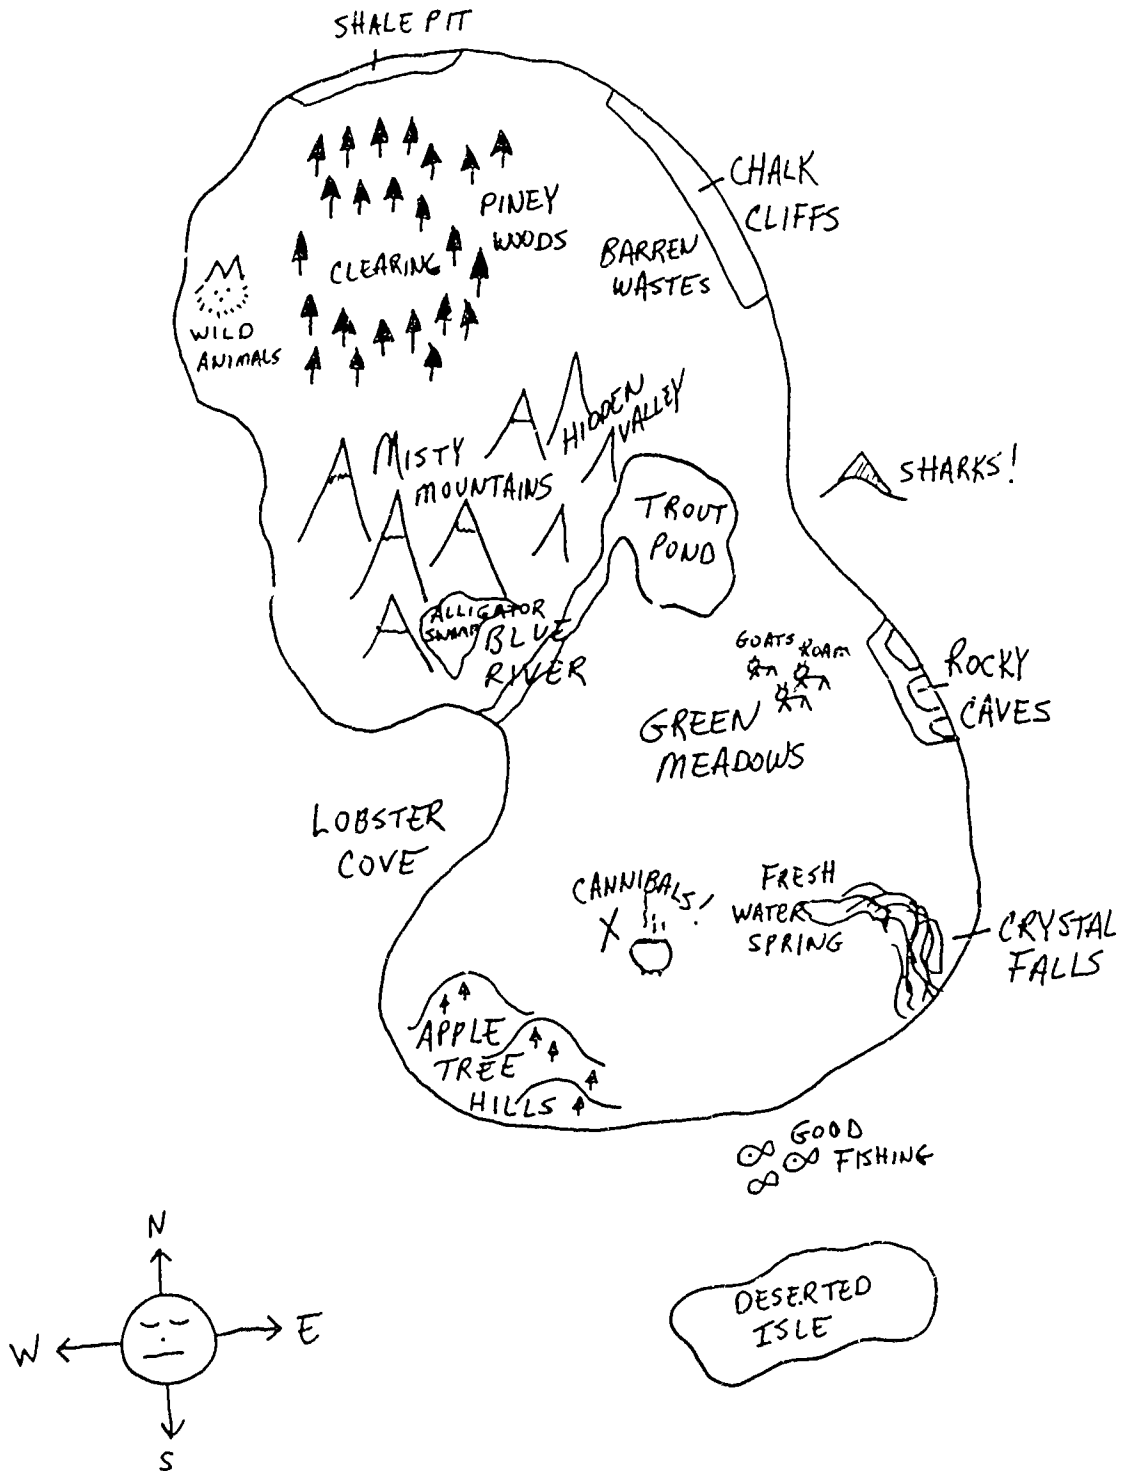 SHALE PIT
CHALK
CLIFFS
PINEY
WOODS
BARREN
WASTES
CLEARING
WILD
ANIMALS
HIDDEN
VALLEY
MISTY
MOUNTAINS
SHARKS!
TROUT
POND
ALLIGATOR
SWAMP
BLUE
RIVER
GOATS
ROAM
ROCKY
CAVES
GREEN
MEADOWS
LOBSTER
COVE
CANNIBALS!
X
FRESH
WATER
SPRING
CRYSTAL
FALLS
APPLE
TREE
HILLS
GOOD
FISHING
DESERTED
ISLE
N
W
E
S